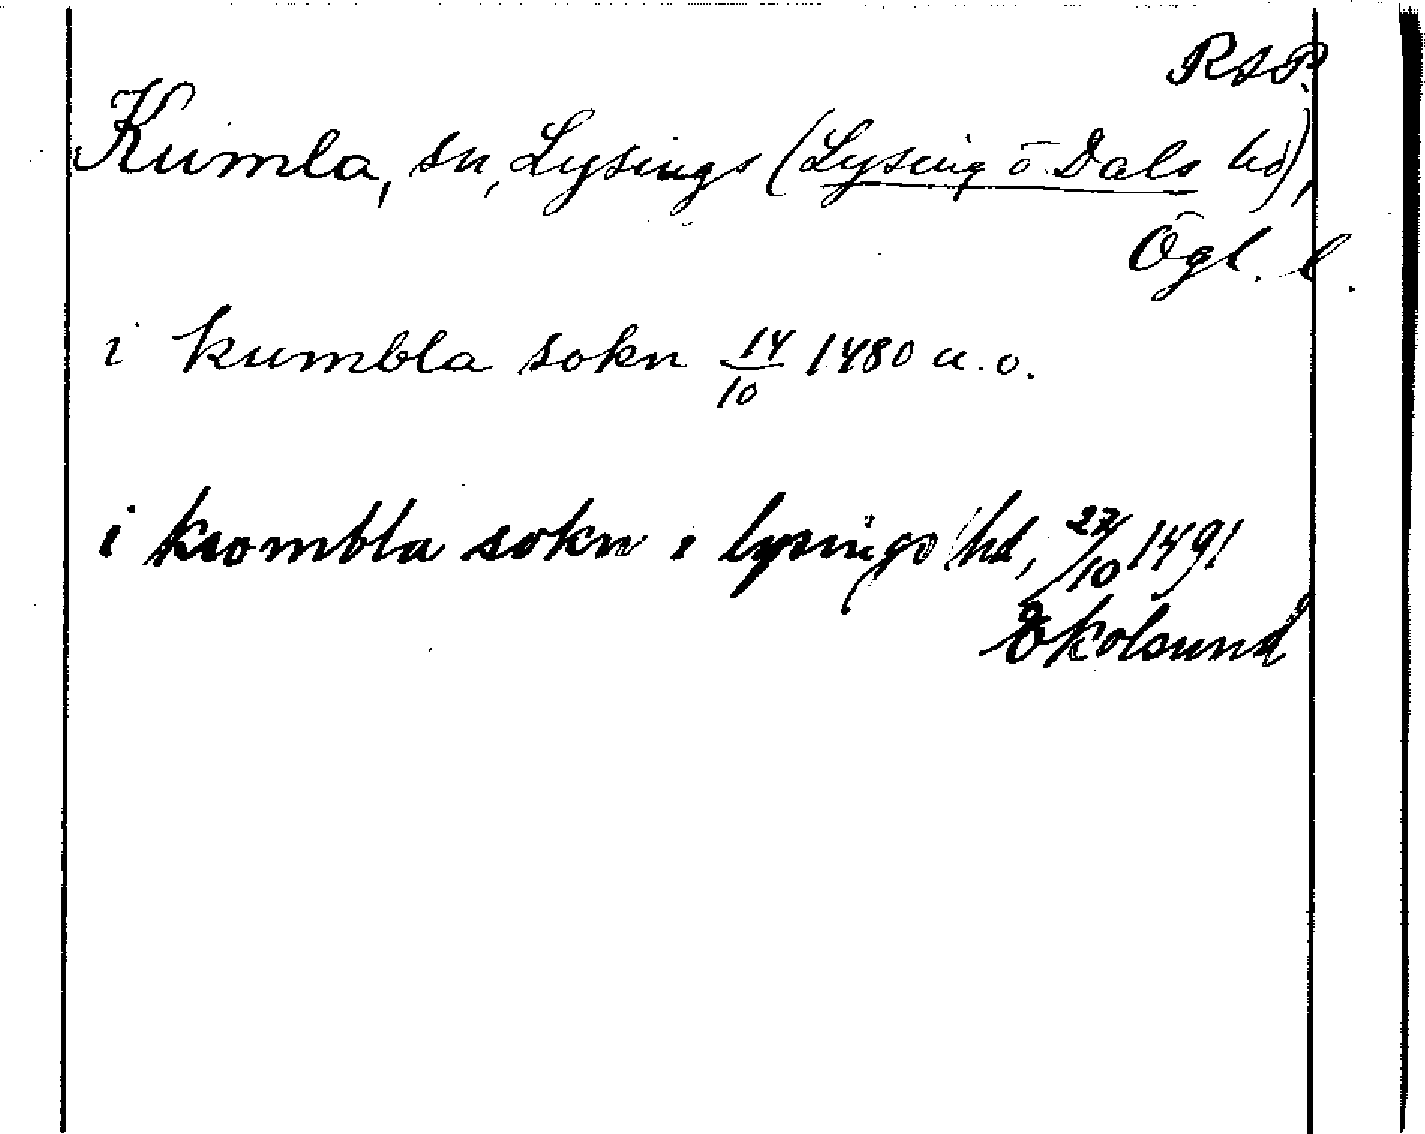 RAP.
Kumla, sn, Lysings (Lysing o Dals hd),
Ögl. l.
i kumbla sokn 14/10 1480 u.o.
i kwmbla sokn i lysings hd, 27/10 1491
Ekolsund